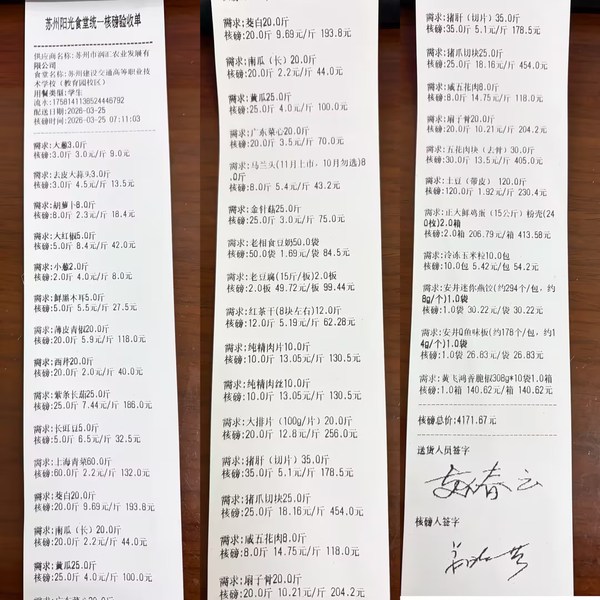 苏州阳光食堂统一核磅验收单
供应商名称:苏州市润汇农业发展有
限公司
食堂名称:苏州建设交通高等职业技
术学校（教育园校区）
用餐类型:学生
流水:1758141138524446792
配送日期:2026-03-25
核磅时间:2026-03-25 07:11:03
需求:大葱3.0斤
核磅:3.0斤 3.0元/斤 9.0元
需求:去皮大蒜头3.0斤
核磅:3.0斤 4.5元/斤 13.5元
需求:胡萝卜8.0斤
核磅:8.0斤 2.3元/斤 18.4元
需求:大红椒5.0斤
核磅:5.0斤 8.4元/斤 42.0元
需求:小葱2.0斤
核磅:2.0斤 4.0元/斤 8.0元
需求:鲜黑木耳5.0斤
核磅:5.0斤 5.5元/斤 27.5元
需求:薄皮青椒20.0斤
核磅:20.0斤 5.9元/斤 118.0元
需求:西芹20.0斤
核磅:20.0斤 2.0元/斤 40.0元
需求:紫条长茄25.0斤
核磅:25.0斤 7.44元/斤 186.0元
需求:长豇豆5.0斤
核磅:5.0斤 6.5元/斤 32.5元
需求:上海青菜60.0斤
核磅:60.0斤 2.2元/斤 132.0元
需求:茭白20.0斤
核磅:20.0斤 9.69元/斤 193.8元
需求:南瓜（长）20.0斤
核磅:20.0斤 2.2元/斤 44.0元
需求:黄瓜25.0斤
核磅:25.0斤 4.0元/斤 100.0元
需求:茭白20.0斤
核磅:20.0斤 9.69元/斤 193.8元
需求:南瓜（长）20.0斤
核磅:20.0斤 2.2元/斤 44.0元
需求:黄瓜25.0斤
核磅:25.0斤 4.0元/斤 100.0元
需求:广东菜心20.0斤
核磅:20.0斤 3.5元/斤 70.0元
需求:马兰头(11月上市，10月勿选)8
.0斤
核磅:8.0斤 5.4元/斤 43.2元
需求:金针菇25.0斤
核磅:25.0斤 3.0元/斤 75.0元
需求:老相食豆奶50.0袋
核磅:50.0袋 1.69元/袋 84.5元
需求:老豆腐(15斤/板)2.0板
核磅:2.0板 49.72元/板 99.44元
需求:红茶干(8块左右)12.0斤
核磅:12.0斤 5.19元/斤 62.28元
需求:纯精肉片10.0斤
核磅:10.0斤 13.05元/斤 130.5元
需求:纯精肉丝10.0斤
核磅:10.0斤 13.05元/斤 130.5元
需求:大排片（100g/片）20.0斤
核磅:20.0斤 12.8元/斤 256.0元
需求:猪肝（切片）35.0斤
核磅:35.0斤 5.1元/斤 178.5元
需求:猪爪切块25.0斤
核磅:25.0斤 18.16元/斤 454.0元
需求:咸五花肉8.0斤
核磅:8.0斤 14.75元/斤 118.0元
需求:扇子骨20.0斤
核磅:20.0斤 10.21元/斤 204.2元
需求:猪肝（切片）35.0斤
核磅:35.0斤 5.1元/斤 178.5元
需求:猪爪切块25.0斤
核磅:25.0斤 18.16元/斤 454.0元
需求:咸五花肉8.0斤
核磅:8.0斤 14.75元/斤 118.0元
需求:扇子骨20.0斤
核磅:20.0斤 10.21元/斤 204.2元
需求:五花肉块（去骨）30.0斤
核磅:30.0斤 13.5元/斤 405.0元
需求:土豆（带皮） 120.0斤
核磅:120.0斤 1.92元/斤 230.4元
需求:正大鲜鸡蛋（15公斤）粉壳(24
0枚)2.0箱
核磅:2.0箱 206.79元/箱 413.58元
需求:冷冻玉米粒10.0包
核磅:10.0包 5.42元/包 54.2元
需求:安井迷你燕饺(约294个/包，约
8g/个)1.0袋
核磅:1.0袋 30.22元/袋 30.22元
需求:安井Q鱼味板(约178个/包，约1
4g/个)1.0袋
核磅:1.0袋 26.83元/袋 26.83元
需求:黄飞鸿香脆椒308g*10袋1.0箱
核磅:1.0箱 140.62元/箱 140.62元
核磅总价:4171.67元
送货人员签字
核磅人签字